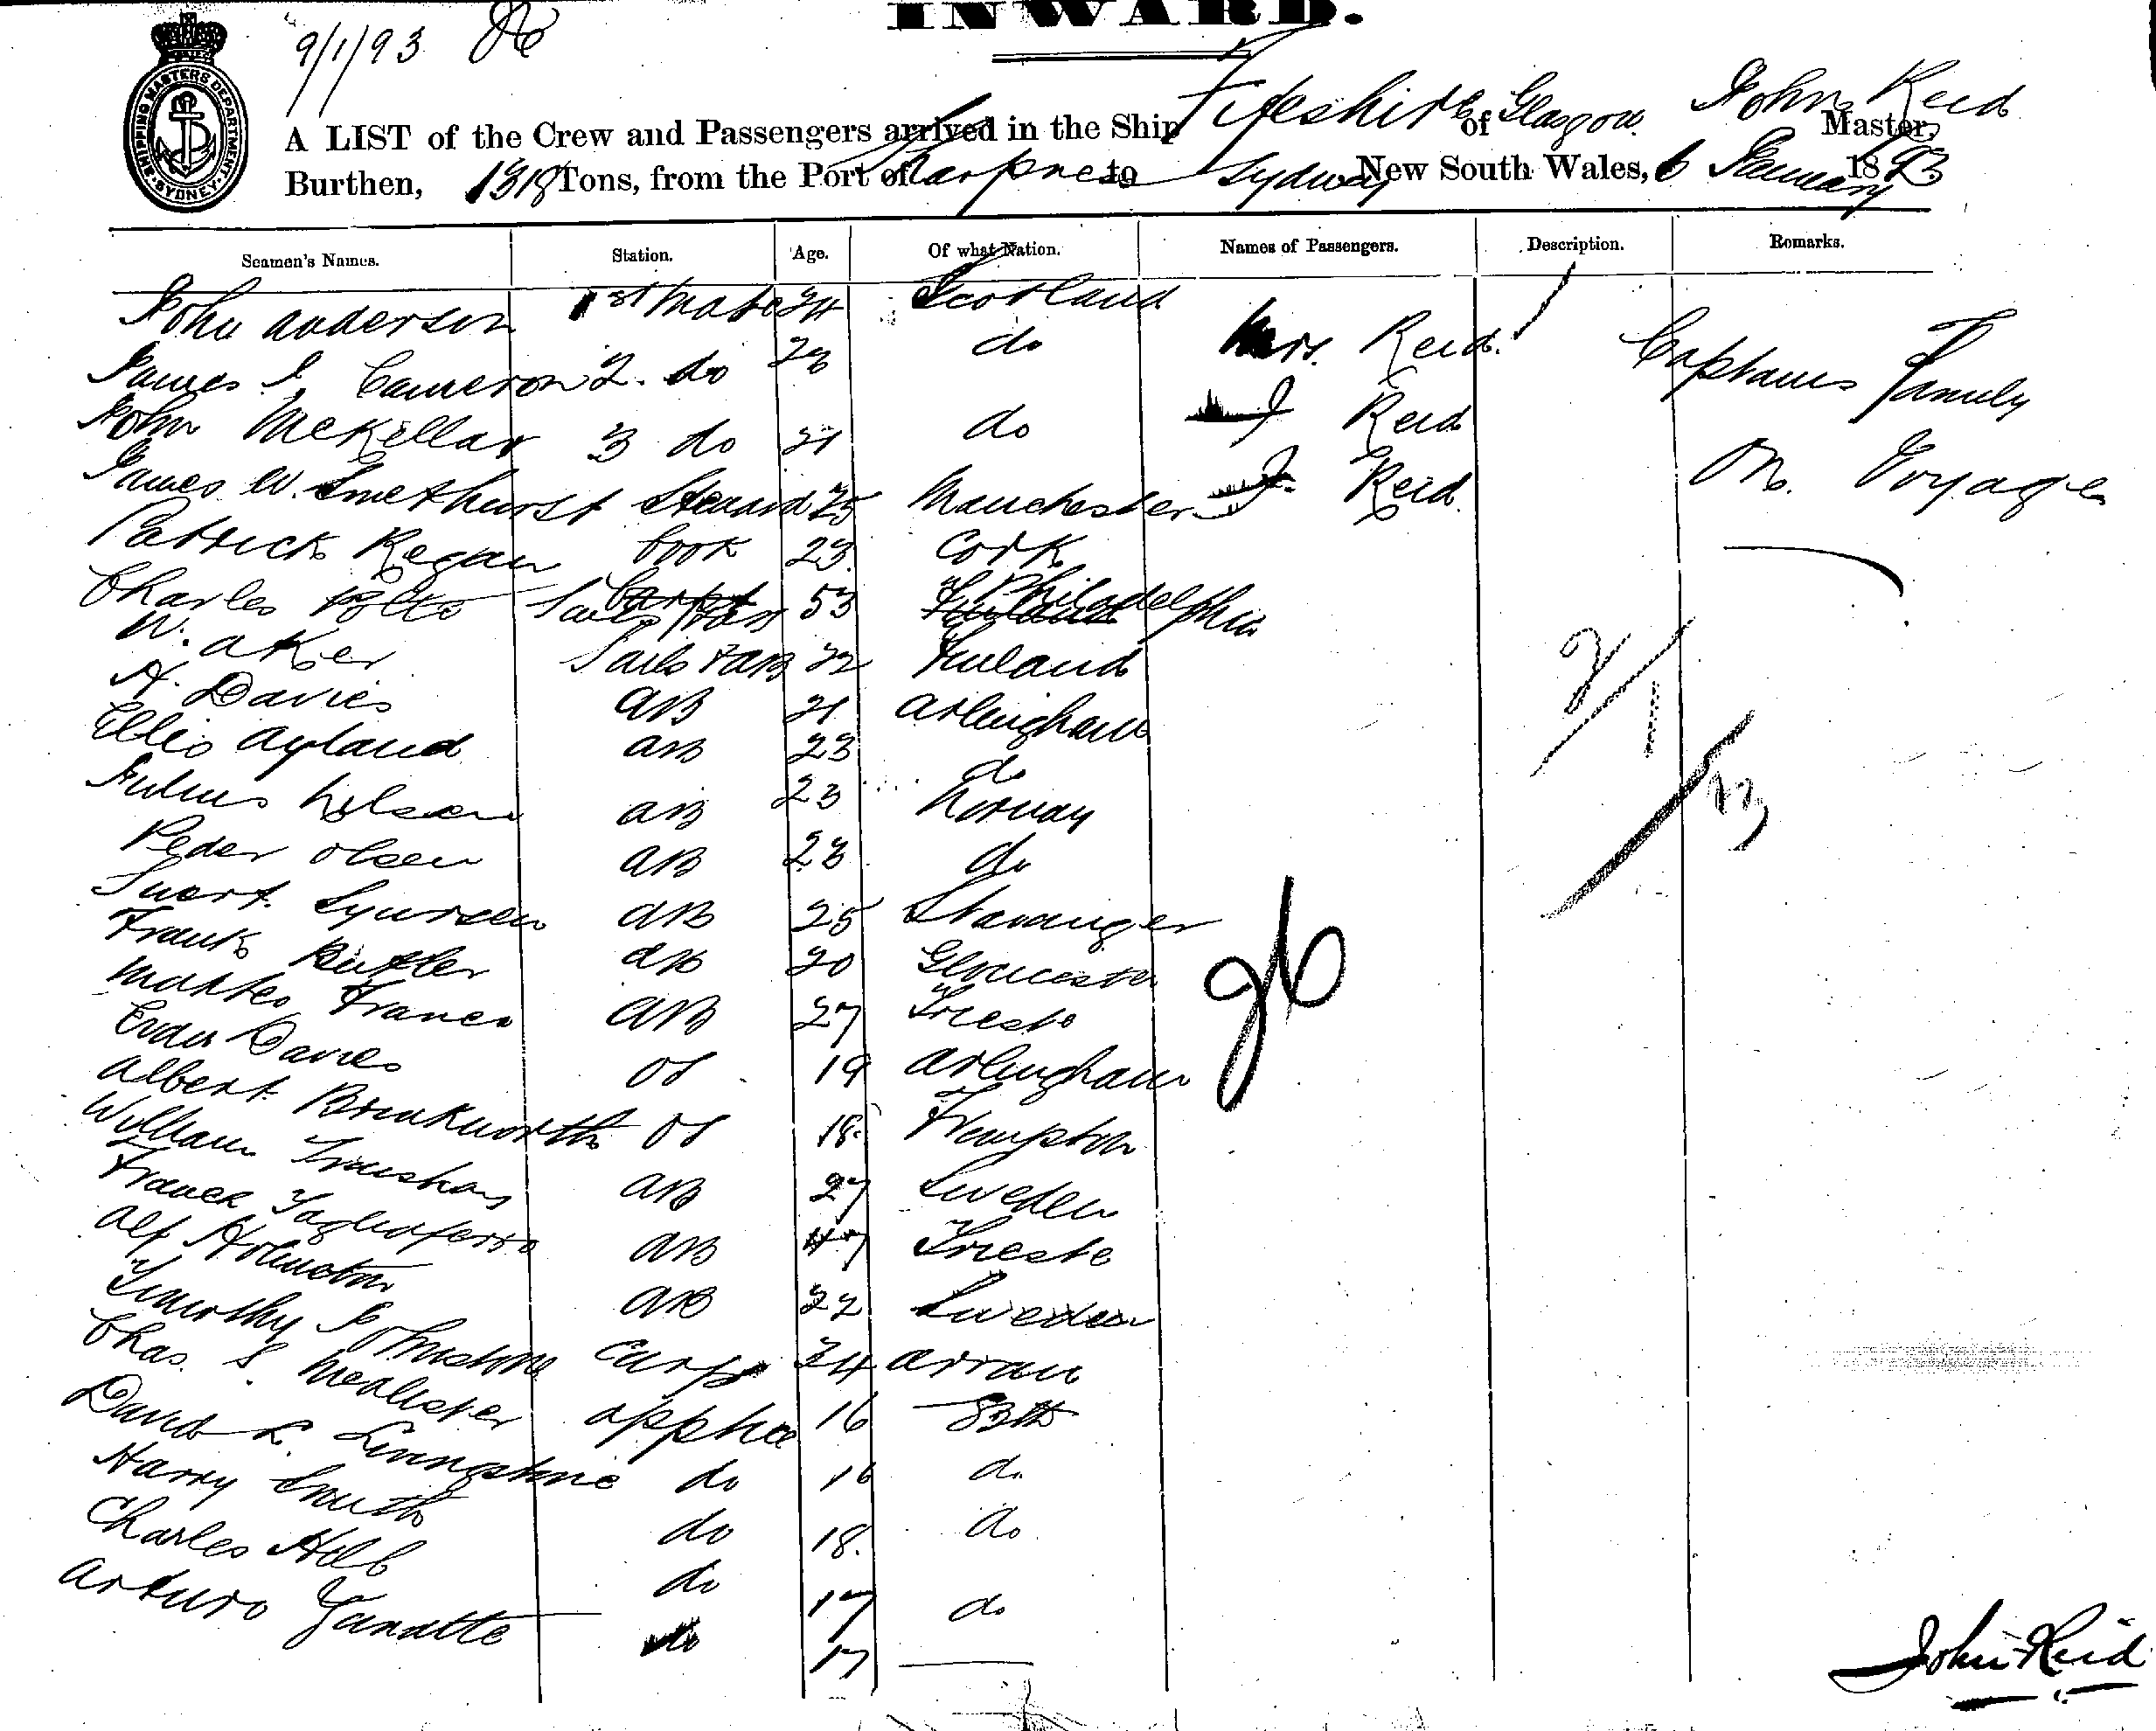 INWARD.
9/1/93
SHIPPING MASTERS DEPARTMENT SYDNEY
A LIST of the Crew and Passengers arrived in the Ship Fifeshire of Glasgow John Reid Master,
Burthen, 1318 Tons, from the Port of Sharpness to Sydney New South Wales, 6 January 1893
Seamen's Names. Station. Age. Of what Nation. Names of Passengers. Description. Remarks.
John Anderson 1st Mate 24 Scotland
James Cameron 2. do 28 do Mrs. Reid. Captains Family
John McKellar 3 do 21 do J Reid
James W. Smethurst Steward 25 Manchester J. Reid. On Voyage
Patrick Regan Cook 23 Cork
Charles Sails 53 Philadelphia
W. Aker Sails 22 Finland
A. Davies AB 21 Arlingham
Ellis Ayland AB 23 do
Julius Nilsen AB 23 Norway
Peder Olsen AB 23 do
AB 25 Stavanger
Frank Butler AB 20 Gloucester
Matteo Franco AB 27 Trieste
Davies OS 19 Arlingham
Albert Brinkworth OS 18. Frampton
William AB 27 Sweden
Tagliaferro AB 47 Trieste
Alf AB 22 Sweden
Timothy Johnstone Carp 34 Arran
Chas. S. McAlister Apptce 16
David L. Livingstone do 16 do
Harry Smith do 18. do
Charles do 17 do
Arturo Zanatto do 17
2/1/93
John Reid